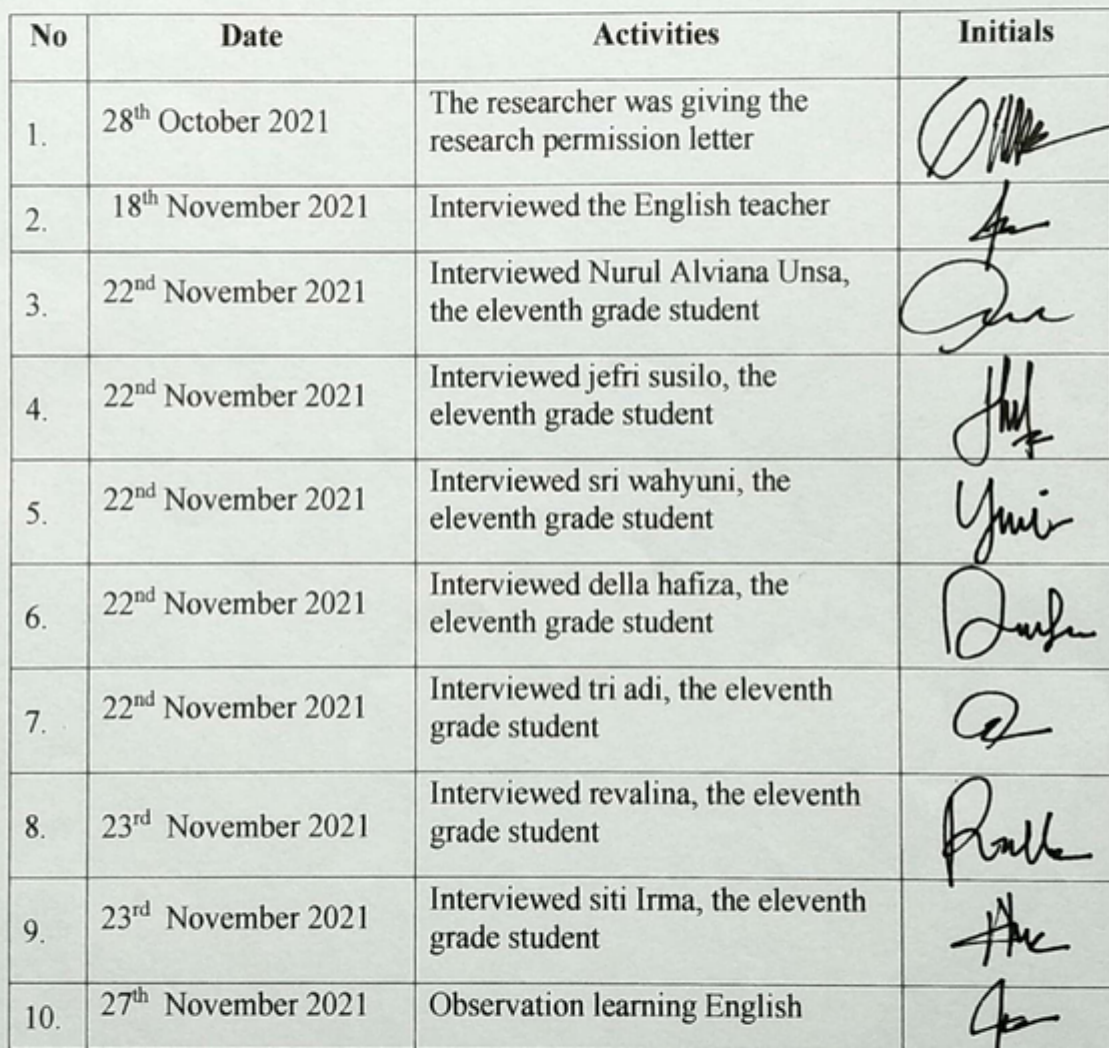 No Date Activities Initials
1. 28th October 2021 The researcher was giving the
research permission letter
2. 18th November 2021 Interviewed the English teacher
3. 22nd November 2021 Interviewed Nurul Alviana Unsa,
the eleventh grade student
4. 22nd November 2021 Interviewed jefri susilo, the
eleventh grade student
5. 22nd November 2021 Interviewed sri wahyuni, the
eleventh grade student
6. 22nd November 2021 Interviewed della hafiza, the
eleventh grade student
7. 22nd November 2021 Interviewed tri adi, the eleventh
grade student
8. 23rd November 2021 Interviewed revalina, the eleventh
grade student
9. 23rd November 2021 Interviewed siti Irma, the eleventh
grade student
10. 27th November 2021 Observation learning English